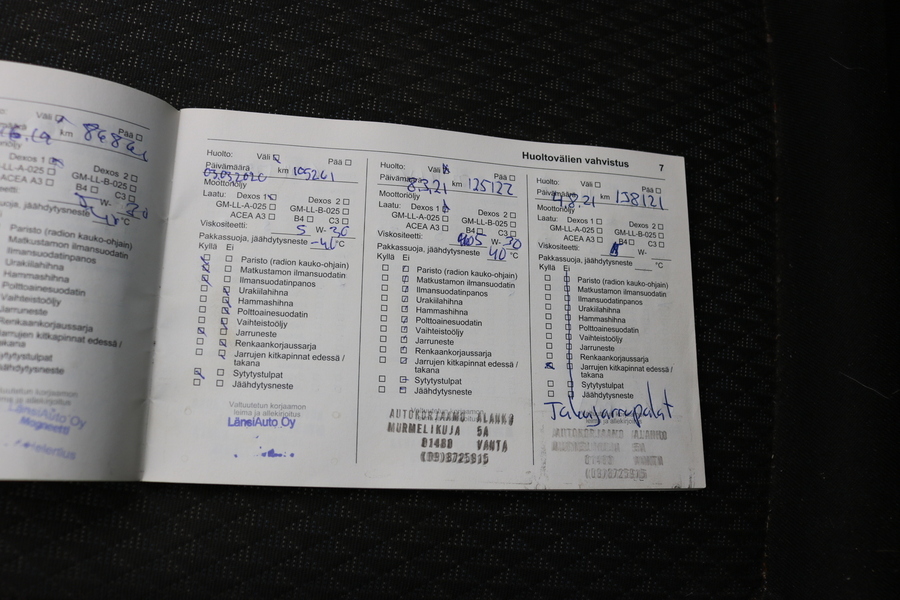 Väli
Pää
km 86861
Dexos 1
Dexos 2
GM-LL-A-025
GM-LL-B-025
ACEA A3
B4
C3
W-
°C
Paristo (radion kauko-ohjain)
Matkustamon ilmansuodatin
Ilmansuodatinpanos
Urakiilahihna
Hammashihna
Polttoainesuodatin
Vaihteistoöljy
Jarruneste
Renkaankorjaussarja
Sytytystulpat
LänsiAuto Oy
Magneetti
Huoltovälien vahvistus 7
Huolto: Väli Pää
Päivämäärä 03.03.2020 km 105261
Moottoriöljy
Laatu: Dexos 1 Dexos 2
GM-LL-A-025 GM-LL-B-025
ACEA A3 B4 C3
Viskositeetti: 5 W- 30
Pakkassuoja, jäähdytysneste -40 °C
Kyllä Ei
Paristo (radion kauko-ohjain)
Matkustamon ilmansuodatin
Ilmansuodatinpanos
Urakiilahihna
Hammashihna
Polttoainesuodatin
Vaihteistoöljy
Jarruneste
Renkaankorjaussarja
Jarrujen kitkapinnat edessä /
takana
Sytytystulpat
Jäähdytysneste
Valtuutetun korjaamon
leima ja allekirjoitus
LänsiAuto Oy
Huolto: Väli Pää
Päivämäärä 8.3.21 km 125122
Moottoriöljy
Laatu: Dexos 1 Dexos 2
GM-LL-A-025 GM-LL-B-025
ACEA A3 B4 C3
Viskositeetti: 5 W- 30
Pakkassuoja, jäähdytysneste 40 °C
Kyllä Ei
Paristo (radion kauko-ohjain)
Matkustamon ilmansuodatin
Ilmansuodatinpanos
Urakiilahihna
Hammashihna
Polttoainesuodatin
Vaihteistoöljy
Jarruneste
Renkaankorjaussarja
Jarrujen kitkapinnat edessä /
takana
Sytytystulpat
Jäähdytysneste
AUTOKORJAAMO ALANKO
MURMELIKUJA 5A
01480 VANTA
(09)8725915
Huolto: Väli Pää
Päivämäärä 4.8.21 km 138121
Moottoriöljy
Laatu: Dexos 1 Dexos 2
GM-LL-A-025 GM-LL-B-025
ACEA A3 B4 C3
Viskositeetti: W-
Pakkassuoja, jäähdytysneste °C
Kyllä Ei
Paristo (radion kauko-ohjain)
Matkustamon ilmansuodatin
Ilmansuodatinpanos
Urakiilahihna
Hammashihna
Polttoainesuodatin
Vaihteistoöljy
Jarruneste
Renkaankorjaussarja
Jarrujen kitkapinnat edessä /
takana
Sytytystulpat
Jäähdytysneste
Takajarrupalat
AUTOKORJAAMO ALANKO
MURMELIKUJA 5A
01480 VANTA
(09)8725915